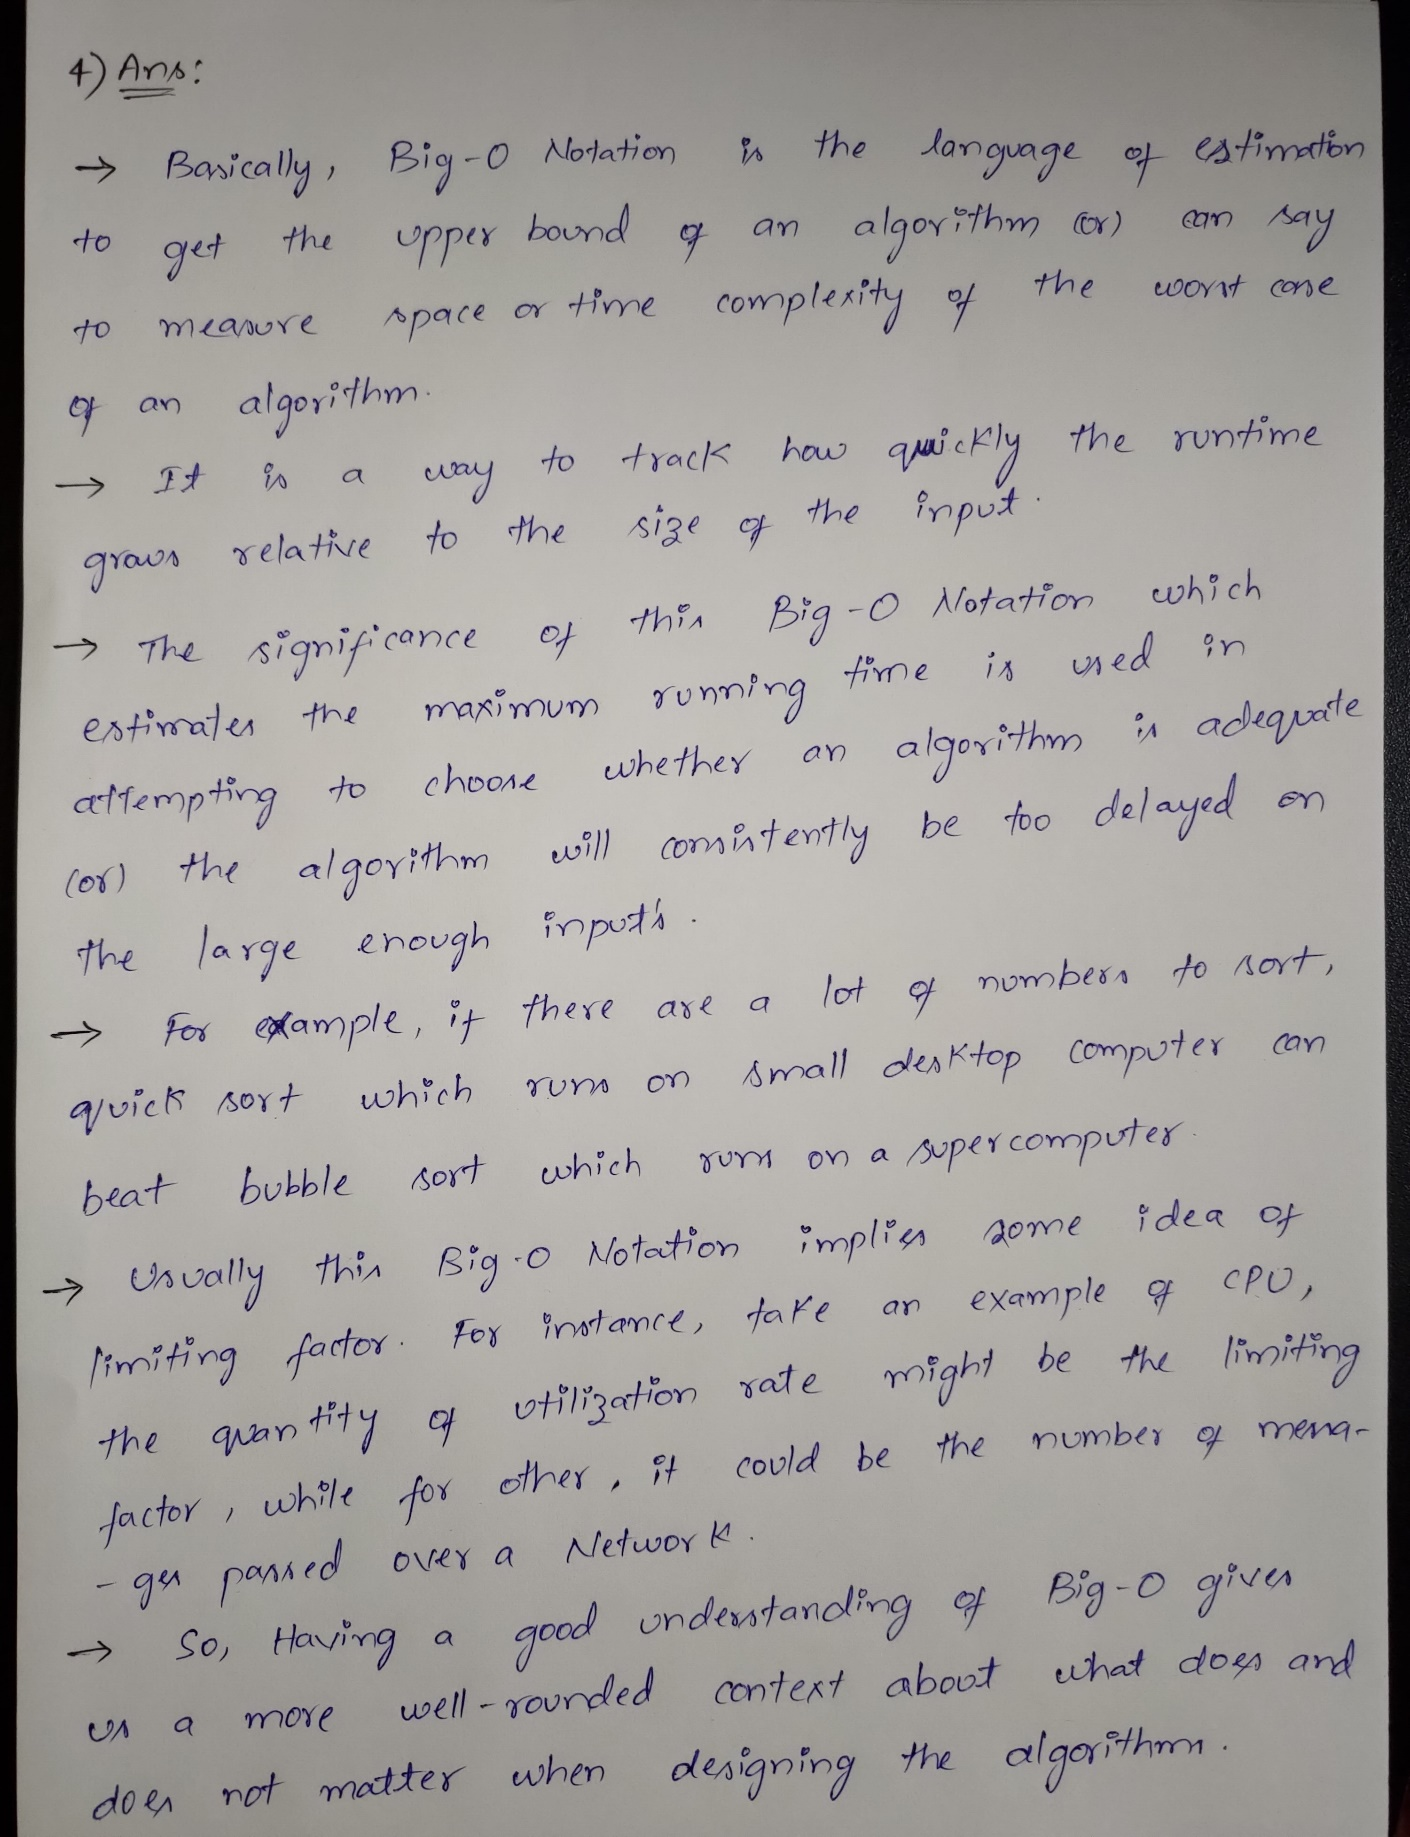 4) Ans:
→ Basically, Big-O Notation is the language of estimation
to get the upper bound of an algorithm (or) can say
to measure space or time complexity of the worst case
of an algorithm.
→ It is a way to track how quickly the runtime
grows relative to the size of the input.
→ The significance of this Big-O Notation which
estimates the maximum running time is used in
attempting to choose whether an algorithm is adequate
(or) the algorithm will consistently be too delayed on
the large enough input's.
→ For example, if there are a lot of numbers to sort,
quick sort which runs on small desktop computer can
beat bubble sort which runs on a supercomputer.
→ Usually this Big-O Notation implies some idea of
limiting factor. For instance, take an example of CPU,
the quantity of utilization rate might be the limiting
factor, while for other, it could be the number of mena-
-ges passed over a Network.
→ So, Having a good understanding of Big-O gives
us a more well-rounded context about what does and
does not matter when designing the algorithm.